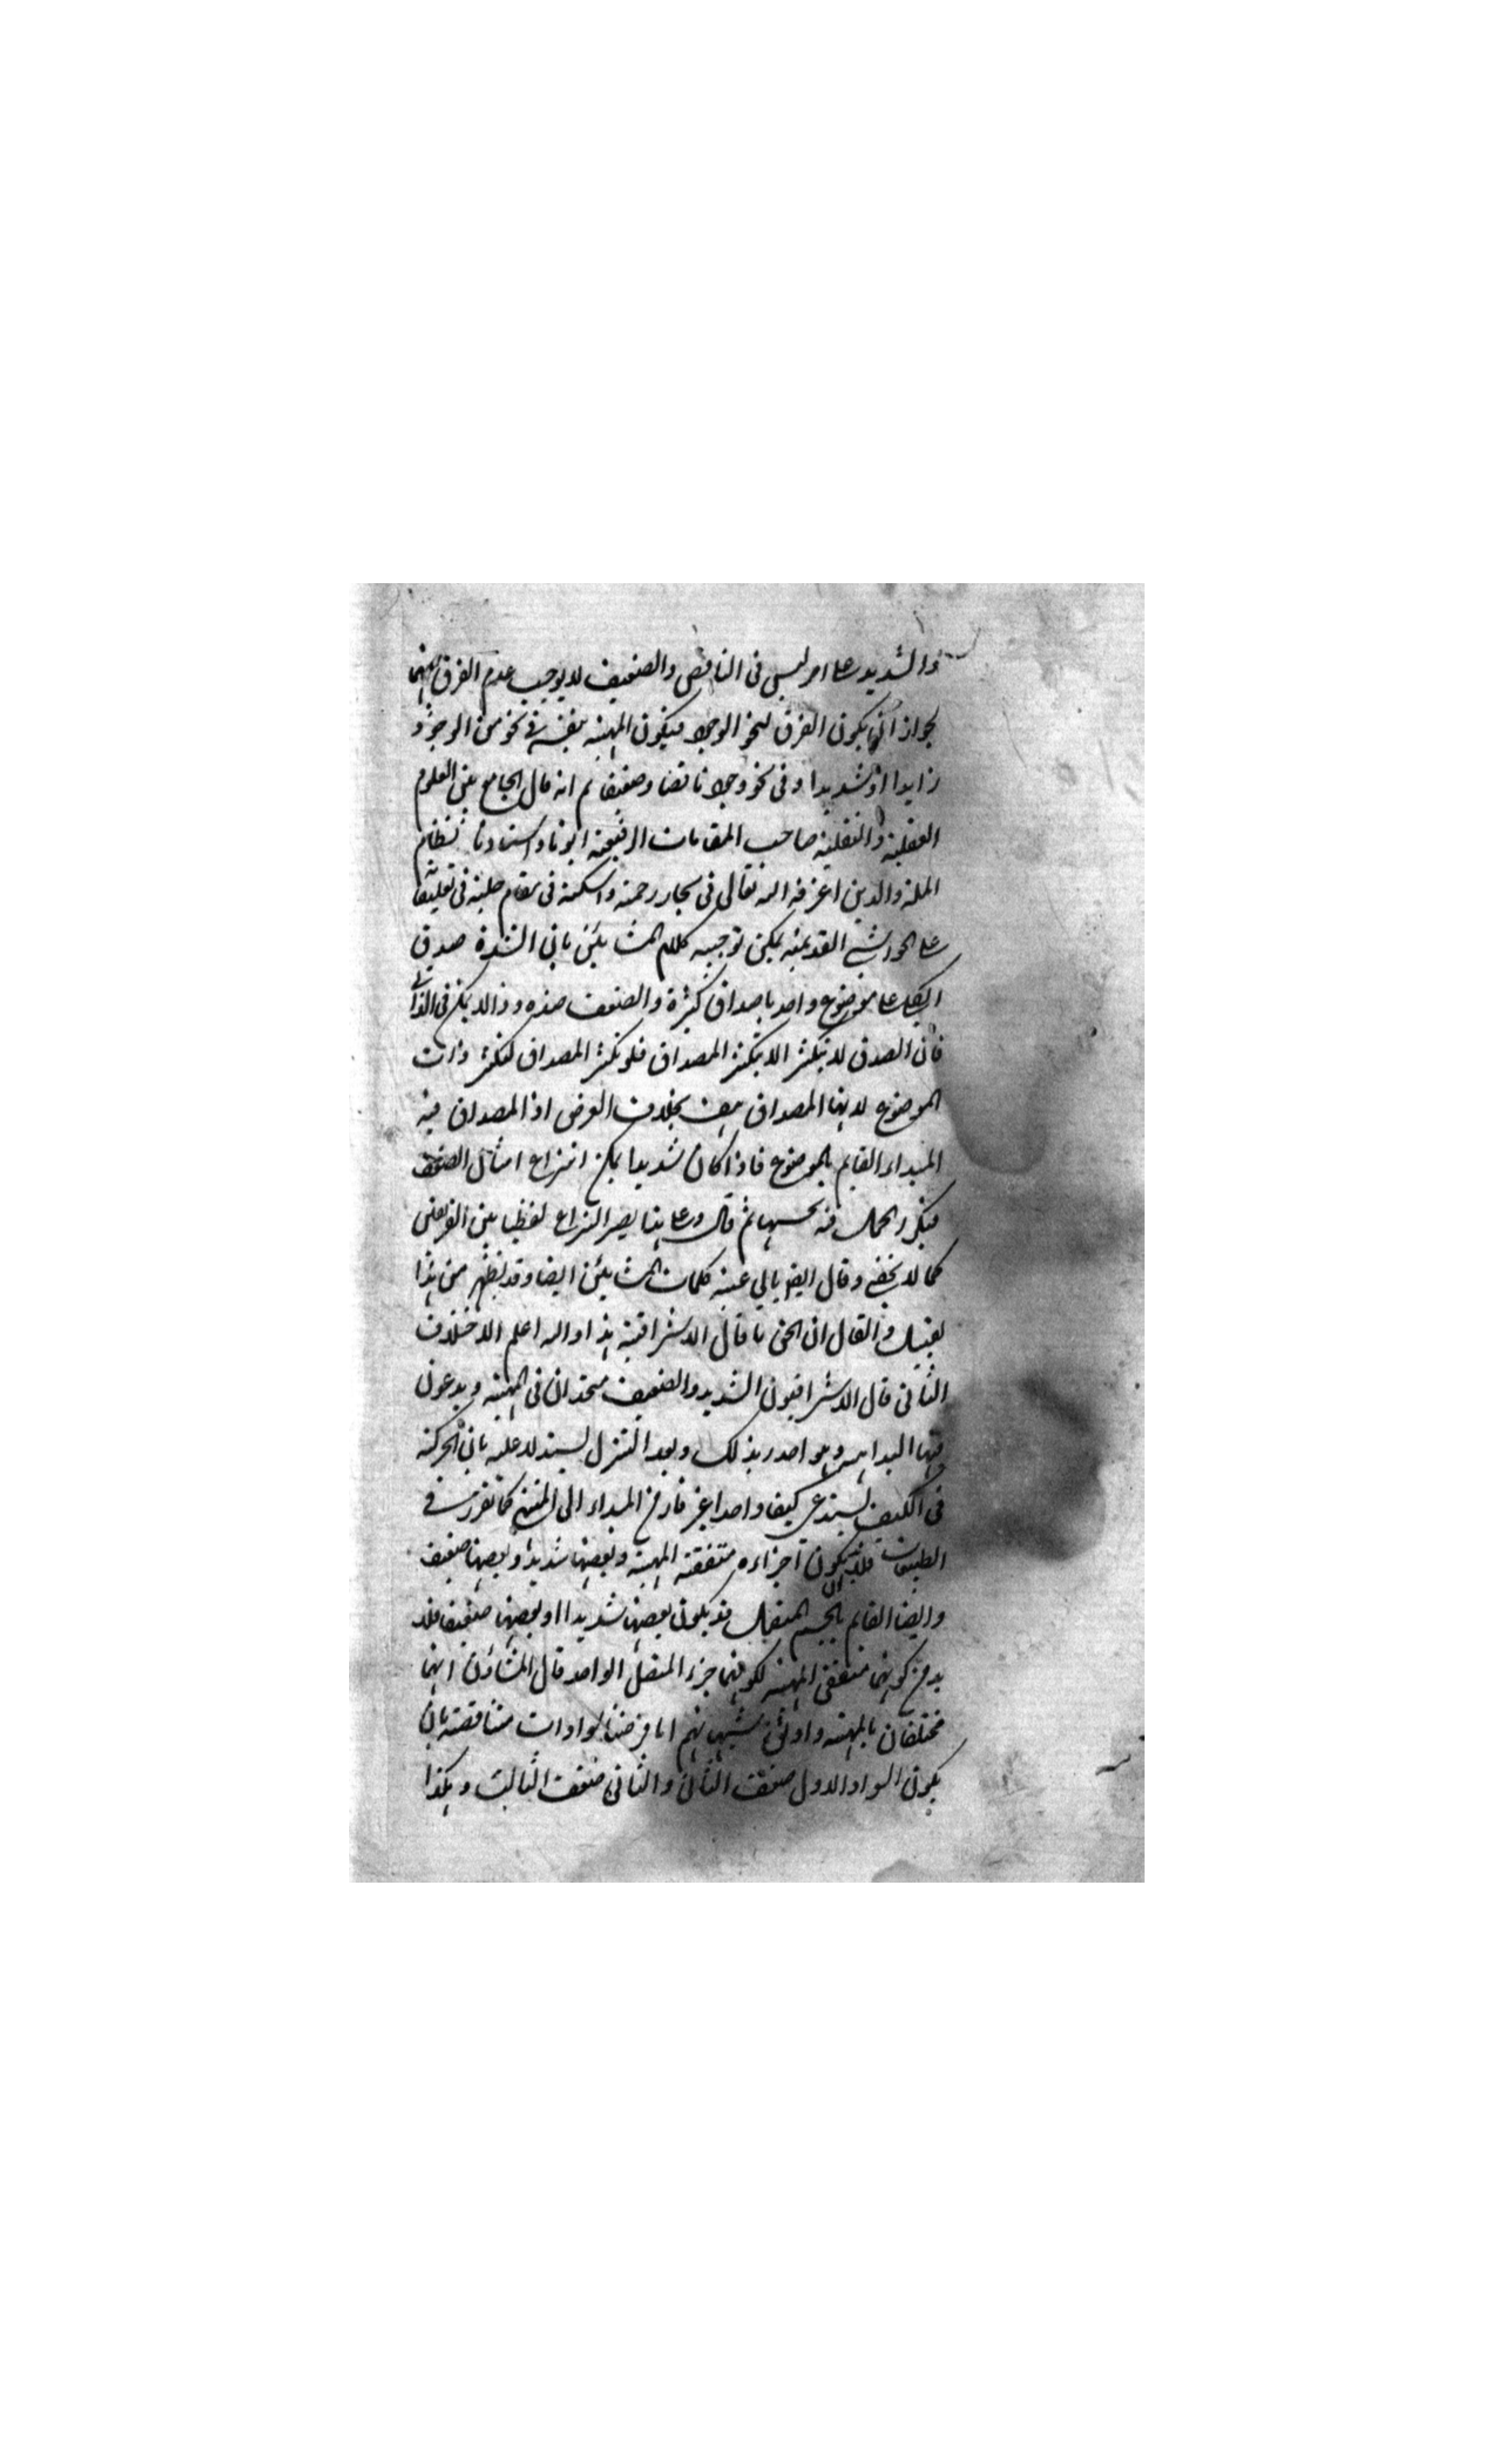 والشديد على امر ليس في الناقص والضعيف لا يوجب عدم الفرق بينهما
لجواز ان يكون الفرق لنحو الوجود فيكون المهية بنفسها في نحو من الوجود
زايدا او شديدا وفي نحو وجود ناقصا وضعيفا ثم انه قال الجامع بين العلوم
العقلية والنقلية صاحب المقامات الرفيعة ابونا واستادنا نظام
الملة والدين اغرقه الله تعالى في بحار رحمته واسكنه في مقام حلته في تعليقاته
على الحواشي القديمة يمكن توجيه كلام المشايين بان الشدة صدق
الكلي على موضوع واحد باصداق كثيرة والضعف ضده وذا لا يمكن في الذاتي
فان الصدق لا يتكثر الا بتكثر المصداق فلو تكثر المصداق لتكثر ذات
الموضوع لانها المصداق بخلاف العرض اذ المصداق فيه
المبداء القايم بالموضوع فاذا كان شديدا يمكن انتزاع امثال الضعف
فيتكرر الحمل فيه بحسبها ثم قال وعلى هذا يصير النزاع لفظيا بين الفريقين
كما لا يخفى وقال ايضا يابي عنه كلمات المشايين ايضا وقد يظهر من هذا
القيل والقال ان الحق ما قال الاشراقية هذا والله اعلم الاختلاف
الثاني قال الاشراقيون الشديد والضعيف متحدان في المهية ويدعون
فيها البداهة وهو احدر بذلك وبعد التنزل يستدل عليه بان الحركة
في الكيف يستدعي كيفا واحدا غير قار من المبداء الى المنتهى كما تقرر في
الطبيعيات فلا بد ان يكون اجزاءه متفقة المهية وبعضها شديد وبعضها ضعيف
وايضا القايم بالجسم المتصل قد يكون بعضها شديدا وبعضها ضعيفا فلا
بد من كونهما متفقي المهية لكونهما جزء المتصل الواحد قال المشاؤن انهما
مختلفان بالمهية واوثق شبهاتهم انا فرضنا سوادات متناقصة بان
يكون السواد الاول ضعف الثاني والثاني ضعف الثالث وهكذا